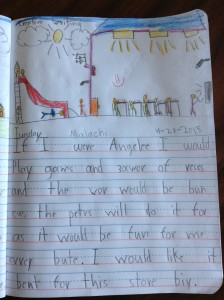 Creative Writing
Tuesday Malachi 4-28-2015
If I were Angelee I would
Play games and
and the wor would be bun
cus the petrs will do it for
as it would be fun for me
bute. I would like it
bent for this store biy.